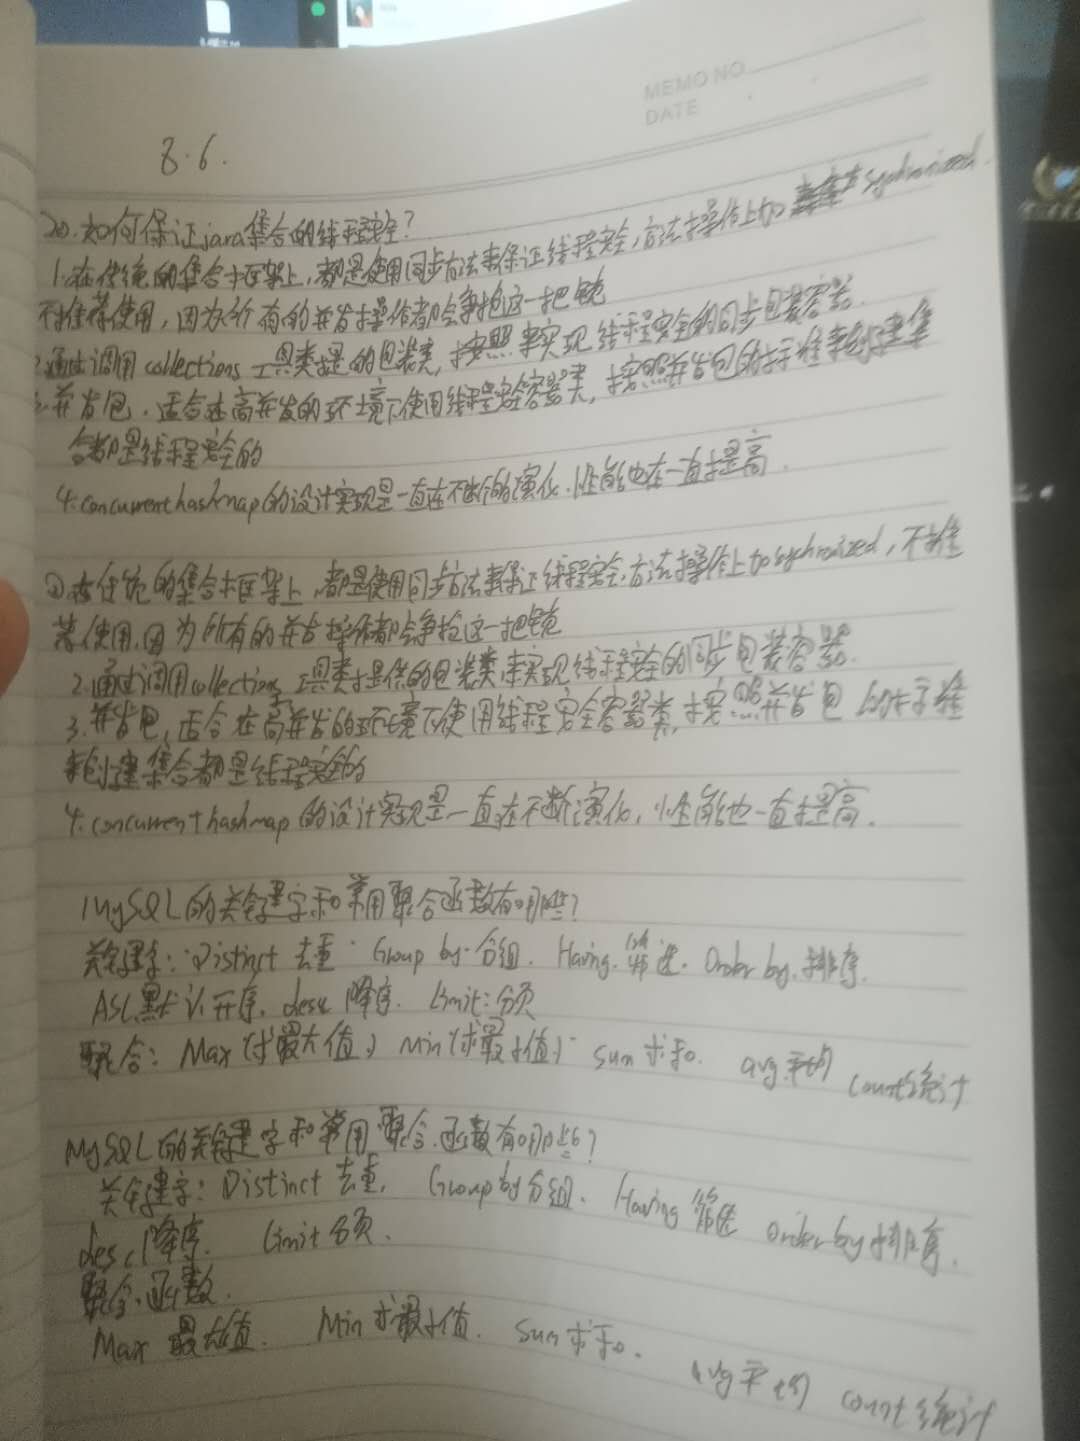 MEMO NO.
DATE
8.6.
20.如何保证java集合的线程安全?
1.在传统的集合框架上,都是使用同步方法来保证线程安全,方法操作上加 sychronized.
不推荐使用,因为所有的并发操作都会争抢这一把锁
2.通过调用collections工具类提的包装类,按照来实现线程安全的同步包装容器.
3.并发包.适合在高并发的环境下使用线程安全容器类,按照并发包的标准来创建集
合都是线程安全的
4.concurrenthashmap的设计实现是一直在不断的演化.性能也在一直提高.
①在传统的集合框架上,都是使用同步方法来保证线程安全,方法操作上加sychronized,不推
荐使用.因为所有的并发操作都会争抢这一把锁
2.通过调用collections工具类提供的包装类来实现线程安全的同步包装容器.
3.并发包,适合在高并发的环境下使用线程安全容器类,按照并发包的标准
来创建集合都是线程安全的
4.concurrenthashmap的设计实现是一直在不断演化,性能也一直提高.
MySQL的关键字和常用聚合函数有哪些?
关键字:Distinct去重.Group by.分组.Having.筛选.Order by.排序.
ASC默认升序.desc降序.Limit:分页
聚合:Max(求最大值)Min(求最小值)sum求和.avg平均 count统计
MySQL的关键字和常用聚合函数有哪些?
关键字:Distinct去重.Group by分组.Having筛选 Order by排序.
desc降序.Limit分页.
聚合函数.
Max最大值.Min求最小值.sum求和.avg平均 count统计